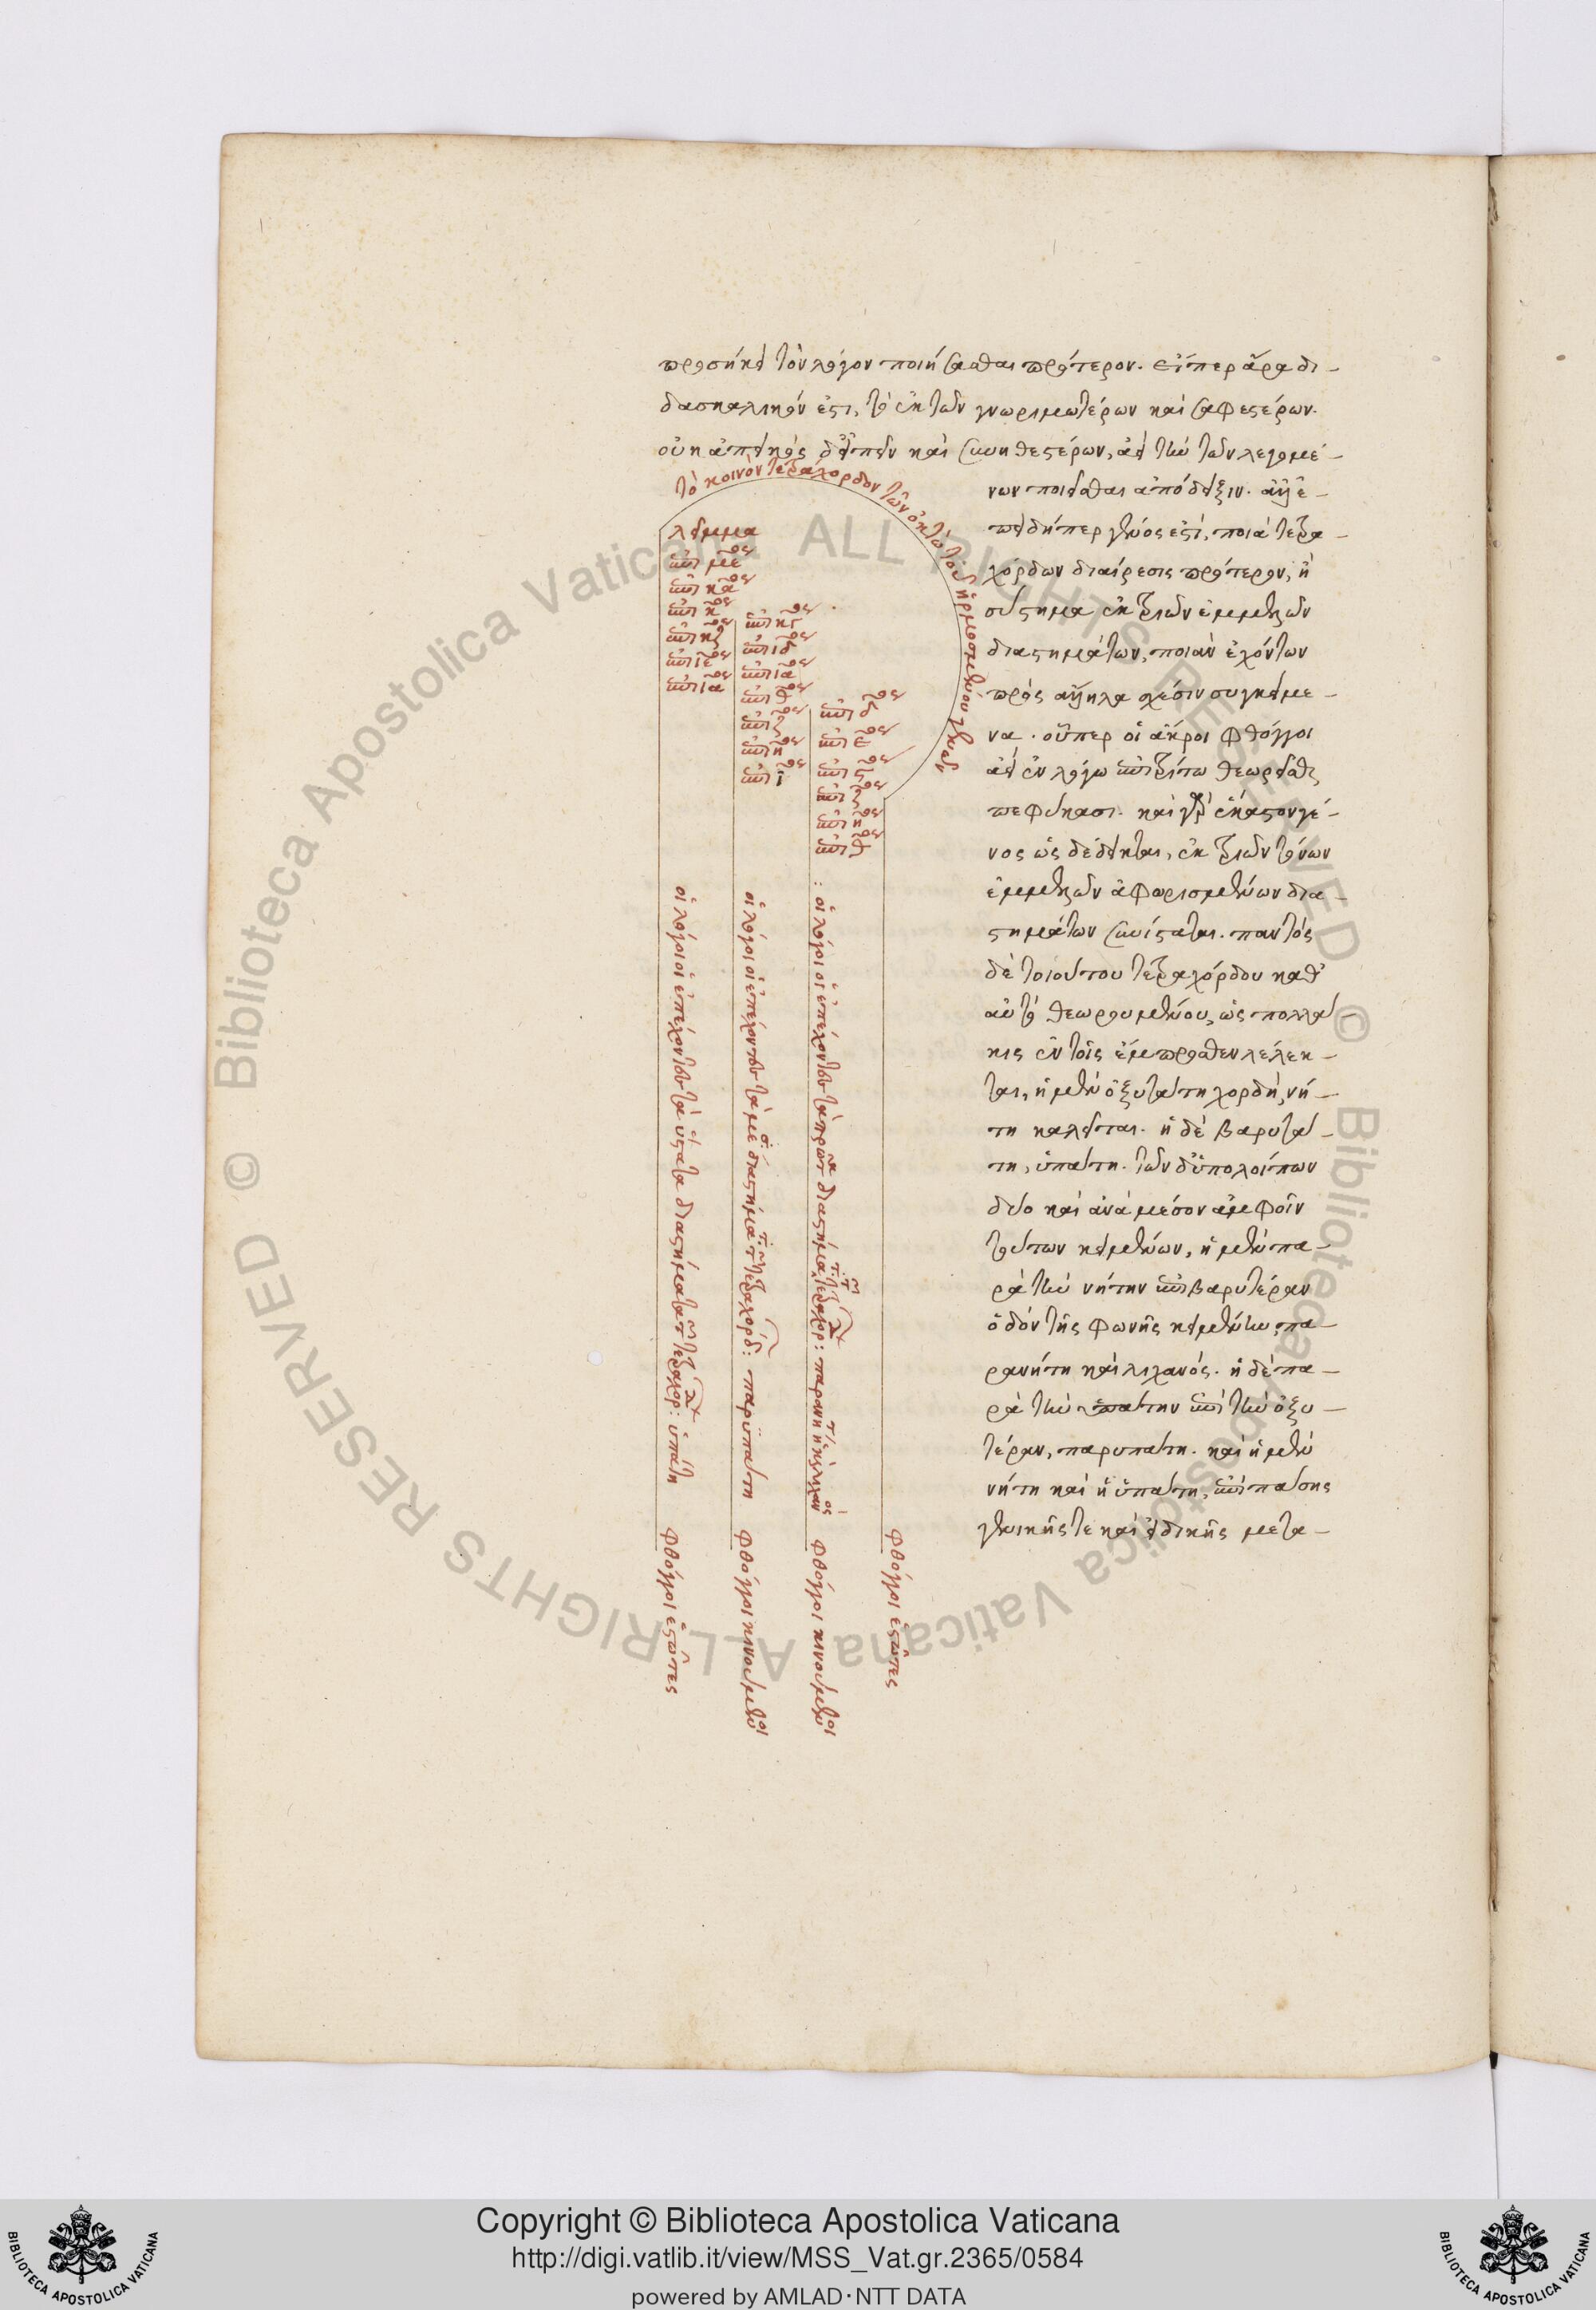 προσήκει τὸν λόγον ποιήσασθαι πρότερον. εἴπερ ἄρα δι-
δασκαλικόν ἐστι, τὸ ἐκ τῶν γνωριμωτέρων καὶ σαφεστέρων.
οὐκ ἀπεικὸς δ' εἰπεῖν καὶ συνηθεστέρων, ἀεὶ τὴν τῶν λεγομέ-
νων ποιεῖσθαι ἀπόδειξιν. ἀλλ' ἐ-
πειδήπερ γένος ἐστὶ, ποιὰ τετρα-
χόρδων διαίρεσις πρότερον, ἢ
σύστημα ἐκ τριῶν ἐμμελῶν
διαστημάτων, ποιὰν ἐχόντων
πρὸς ἄλληλα σχέσιν συγκείμε-
να. οὗπερ οἱ ἄκροι φθόγγοι
ἀεὶ ἐν λόγω ἐπιτρίτω θεωρεῖσθαι
πεφύκασι. καὶ γὰρ ἕκαστον γέ-
νος ὡς δέδεικται, ἐκ τριῶν τινων
ἐμμελῶν ἀφωρισμένων δια-
στημάτων συνίσταται. παντὸς
δὲ τοιούτου τετραχόρδου καθ'
αὑτὸ θεωρουμένου, ὡς πολλά-
κις ἐν τοῖς ἔμπροσθεν λέλεκ-
ται, ἡ μὲν ὀξυτάτη χορδὴ, νή-
τη καλεῖται. ἡ δὲ βαρυτά-
τη, ὑπάτη. τῶν δ' ὑπολοίπων
δύο καὶ ἀνὰ μέσον ἀμφοῖν
τούτων κειμένων, ἡ μὲν πα-
ρὰ τὴν νήτην ἐπὶ βαρυτέραν
ὁδὸν τῆς φωνῆς κειμένην, πα-
ρανήτη καὶ λιχανός. ἡ δὲ πα-
ρὰ τὴν ὑπάτην ἐπὶ τὴν ὀξυ-
τέραν, παρυπάτη. καὶ ἡ μὲν
νήτη καὶ ἡ ὑπάτη, ἐπὶ πάσης
γενικῆς τε καὶ εἰδικῆς μετα-
τὸ κοινὸν τετράχορδον τῶν ὀκτὼ τοῦ ἡρμοσμένου γενῶν
λεῖμμα
ἐπὶ με^ος
ἐπὶ κα^ος
ἐπὶ κ^ος
ἐπὶ κζ^ος
ἐπὶ ιε^ος
ἐπὶ ια^ος
ἐπὶ κζ^ος
ἐπὶ ιδ^ος
ἐπὶ ια^ος
ἐπὶ θ^ος
ἐπὶ ζ^ος
ἐπὶ η^ος
ἐπὶ ι^ος
ἐπὶ δ^ος
ἐπὶ ε^ος
ἐπὶ ς^ος
ἐπὶ ζ^ος
ἐπὶ η^ος
ἐπὶ θ^ος
οἱ λόγοι οἱ ἐπέχοντες τὰ ὕστατα διαστήματα τῶν τετραχόρ: ὑπάτη
οἱ λόγοι οἱ ἐπέχοντες τὰ μέσ διαστήματ τῶν τετραχόρδ: παρυπάτη
: οἱ λόγοι οἱ ἐπέχοντες τὰ πρῶτ διαστήματ τῶν τετραχόρ: παρανήτη ἡ καὶ λιχανός
φθόγγοι ἑστῶτες
φθόγγοι κινούμενοι
φθόγγοι κινούμενοι
φθόγγοι ἑστῶτες
Copyright © Biblioteca Apostolica Vaticana
http://digi.vatlib.it/view/MSS_Vat.gr.2365/0584
powered by AMLAD·NTT DATA
© Biblioteca Apostolica Vaticana ALL RIGHTS RESERVED
© Biblioteca Apostolica Vaticana ALL RIGHTS RESERVED
BIBLIOTECA APOSTOLICA VATICANA
BIBLIOTECA APOSTOLICA VATICANA